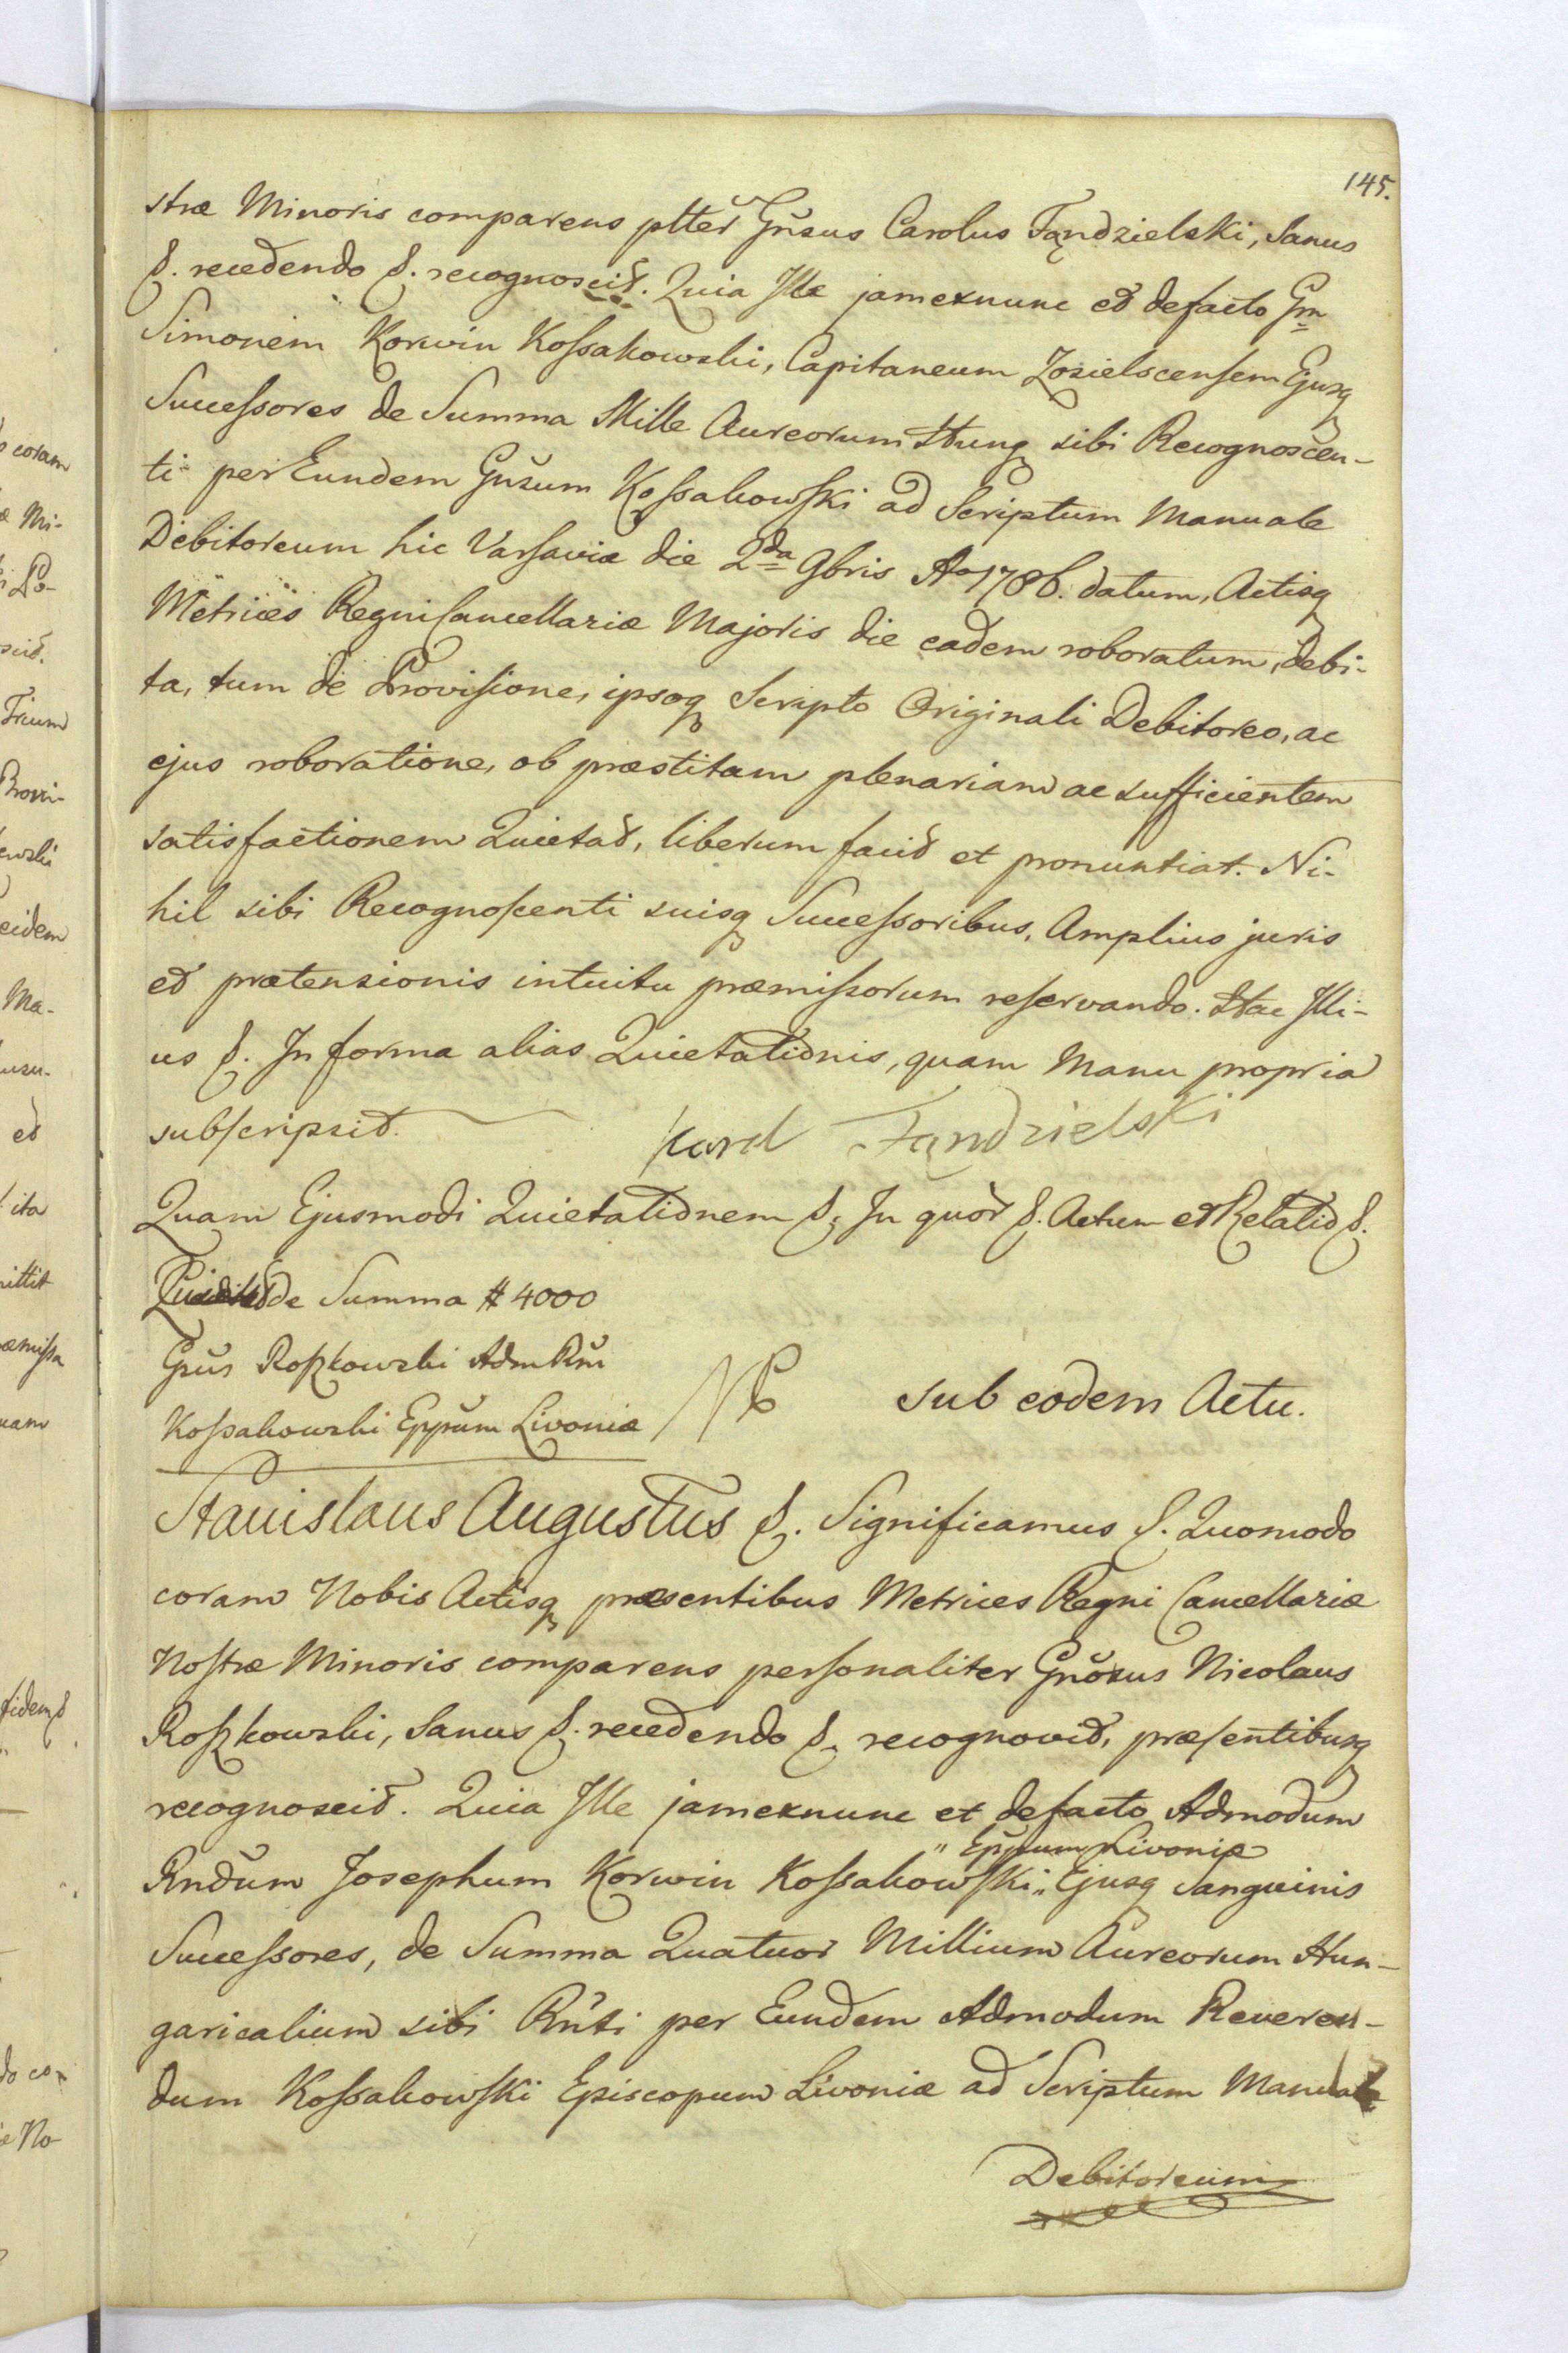 145.
stræ Minoris comparens pltter Gnsus Carolus Fądzielski, Sanus
&. recedendo &. recognoscit. Quia Ille jamexnunc et defacto Gm
Simonem Korwin Kossakowski, Capitaneum Ejusq
Successores de Summa Mille Aureorum Hung sibi Recognoscen-
ti per Eundem Gnsum Kossakowski ad Scriptum Manuale
Debitoreum hic Varsaviæ die 2da 9bris Ao 1786. datum, Actisq
Metrices Regni Cancellariæ Majoris die eadem roboratum, debi-
ta, tum de Provisione, ipsoq Scripto Originali Debitoreo, ac
ejus roboratione, ob præstitam plenariam ac sufficientem
satisfactionem Quietat, liberum facit et pronuntiat. Ni-
hil sibi Recognoscenti suisq Successoribus, Amplius juris
et prætensionis intuitu præmissorum reservando. Hac Illi-
us &. In forma alias Quietationis, quam Manu propria
subscripsit. Karol Fądzielski
Quam Ejusmodi Quietationem &. In quor &. Actum et Relatio &.
de Summa # 4000
Gsus Roszkowski AdmRm
Kossakowski Eppum Livoniæ
sub eodem Actu.
Stanislaus Augustus &. Significamus &. Quomodo
coram Nobis Actisq præsentibus Metrices Regni Cancellariæ
Nostræ Minoris comparens personaliter Gnosus Nicolaus
Roszkowski, Sanus &. recedendo &. recognovit, præsentibusq
recognoscit. Quia Ille jamexnunc et defacto Admodum
" Eppum Livoniæ
Rndum Josephum Korwin Kossakowski " Ejusq Sanguinis
Successores, de Summa Quatuor Millium Aureorum Hun-
garicalium sibi Rnti per Eundem Admodum Reveren-
dum Kossakowski Episcopum Livoniæ ad Scriptum Manuale
Debitoreum